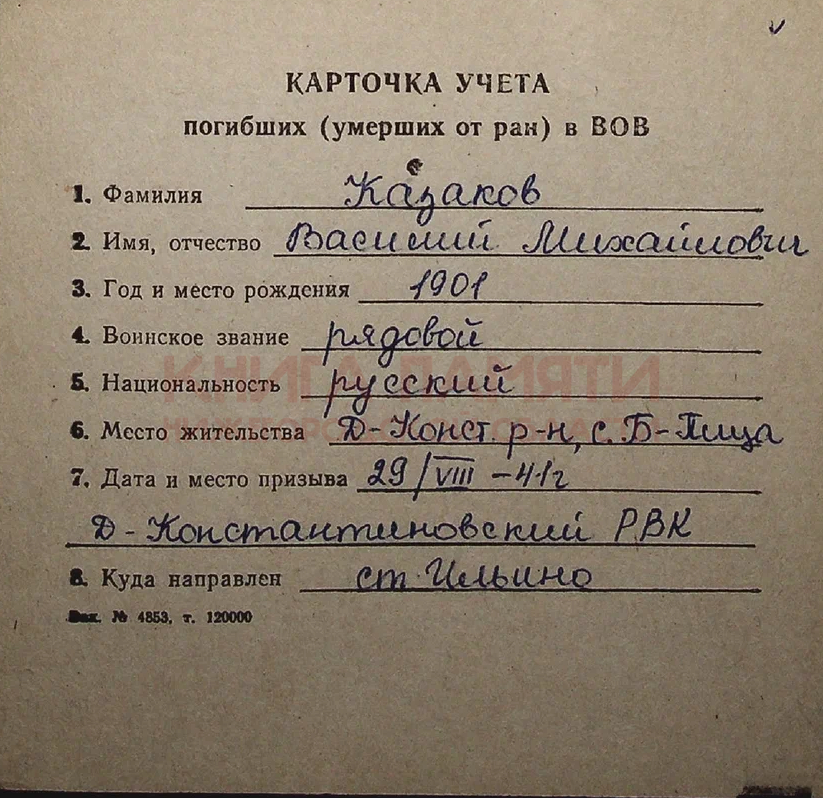 КАРТОЧКА УЧЕТА
погибших (умерших от ран) в ВОВ
1. Фамилия Казаков
2. Имя, отчество Василий Михайлович
3. Год и место рождения 1901
4. Воинское звание рядовой
КНИГА ПАМЯТИ
5. Национальность русский
6. Место жительства Д-Конст. р-н, с. Б-Пица
7. Дата и место призыва 29/VIII -41г
Д-Константиновский РВК
8. Куда направлен ст. Ильино
Зак. № 4853, т. 120000